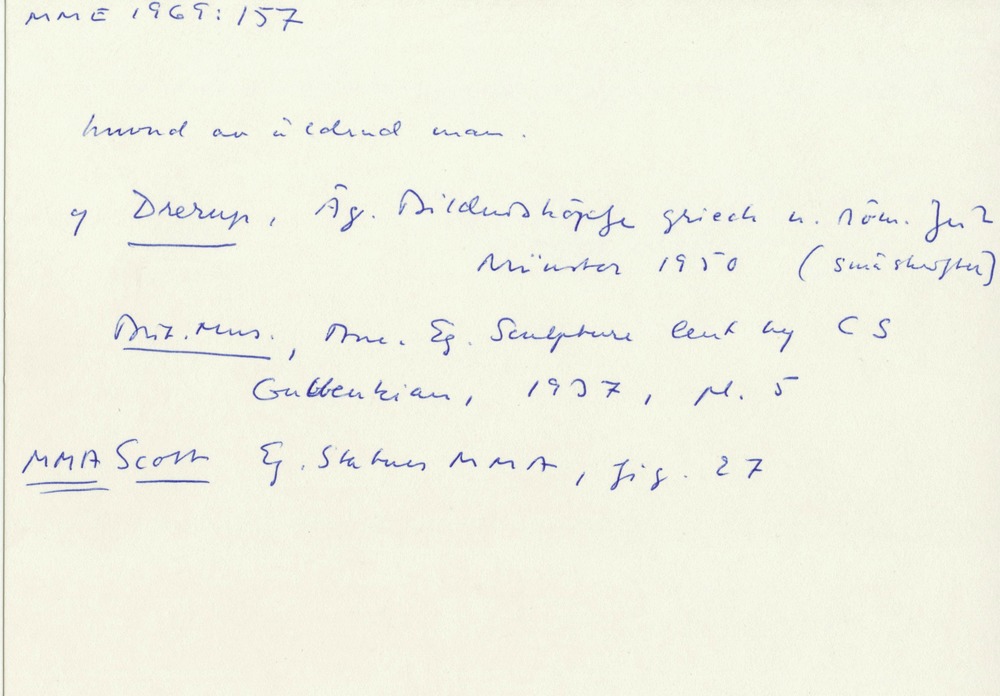 MME 1969:157
huvud av åldrad man.
cf Drerup, Äg. Bildnisköpfe griech u. röm. Zeit
Münster 1950 (småskrifter)
Brit. Mus., Anc. Eg. Sculpture lent by C S
Gulbenkian, 1937, pl. 5
MMA Scott Eg. Statues MMA, fig. 27